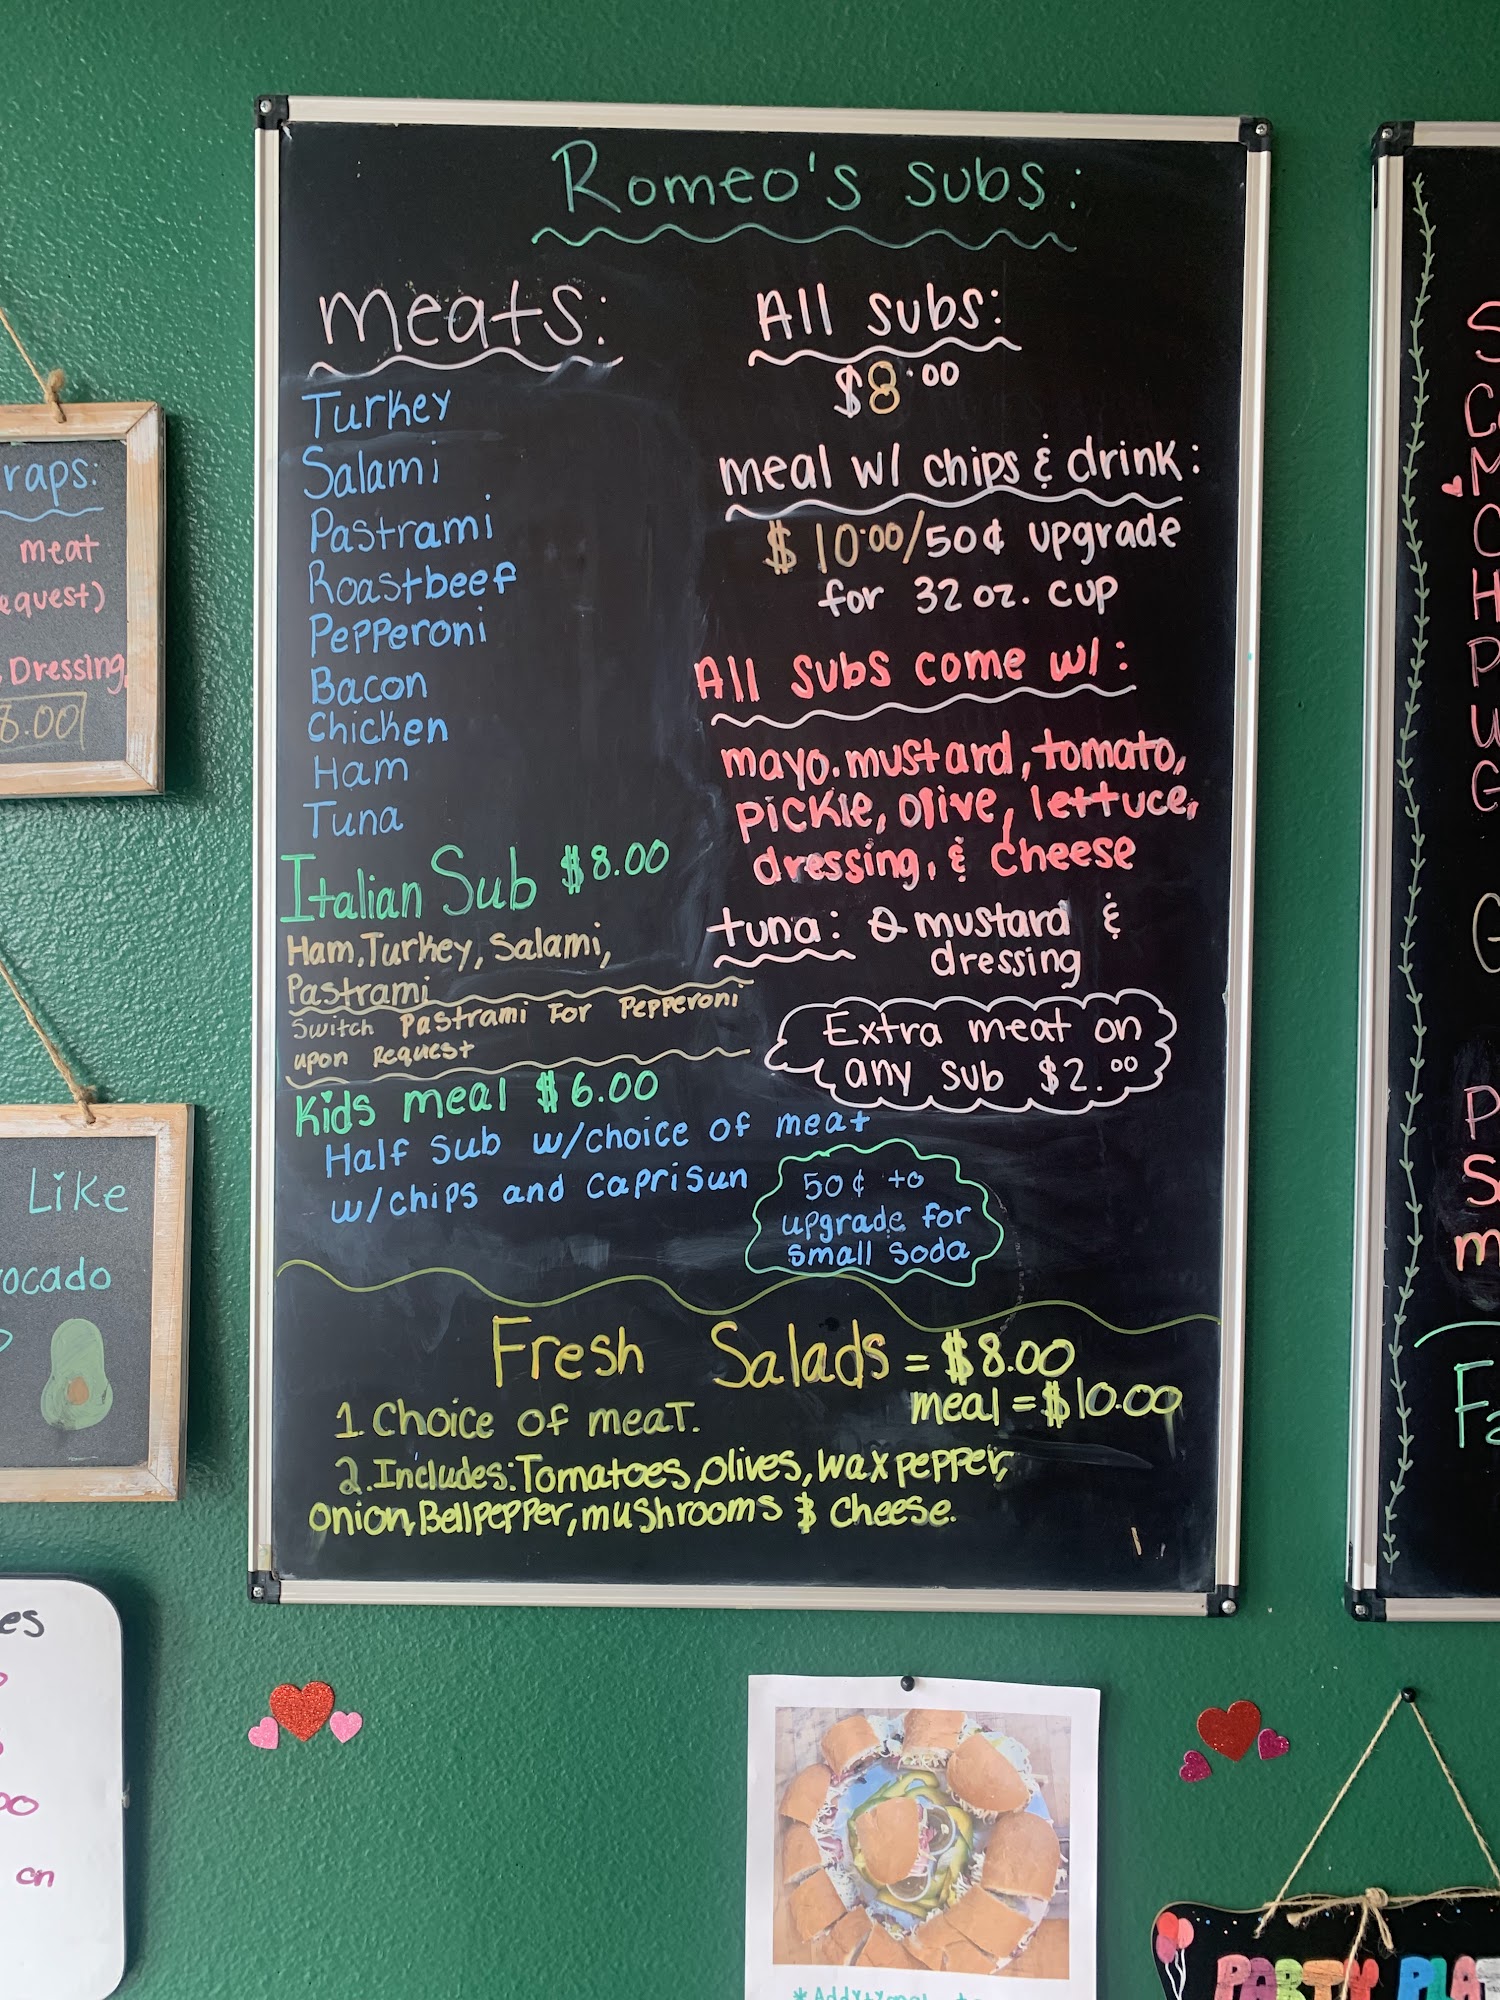 Romeo's subs:
meats:
Turkey
Salami
Pastrami
Roastbeef
Pepperoni
Bacon
Chicken
Ham
Tuna
Italian Sub $8.00
Ham, Turkey, Salami,
Pastrami
Switch Pastrami For Pepperoni
upon Request
Kids meal $6.00
Half Sub w/choice of meat
w/chips and caprisun
50¢ to
upgrade for
small soda
All subs:
$8.00
meal w/ chips & drink:
$10.00/50¢ upgrade
for 32 oz. cup
All subs come w/:
mayo. mustard, tomato,
pickle, olive, lettuce,
dressing, & cheese
tuna: mustard &
dressing
Extra meat on
any sub $2.00
Fresh Salads = $8.00
meal = $10.00
1. Choice of meaT.
2. Includes: Tomatoes, olives, wax pepper,
onion, Bellpepper, mushrooms & cheese.
raps:
meat
equest)
Dressing,
8.00
Like
ocado
es
00
on
PARTY PLAT